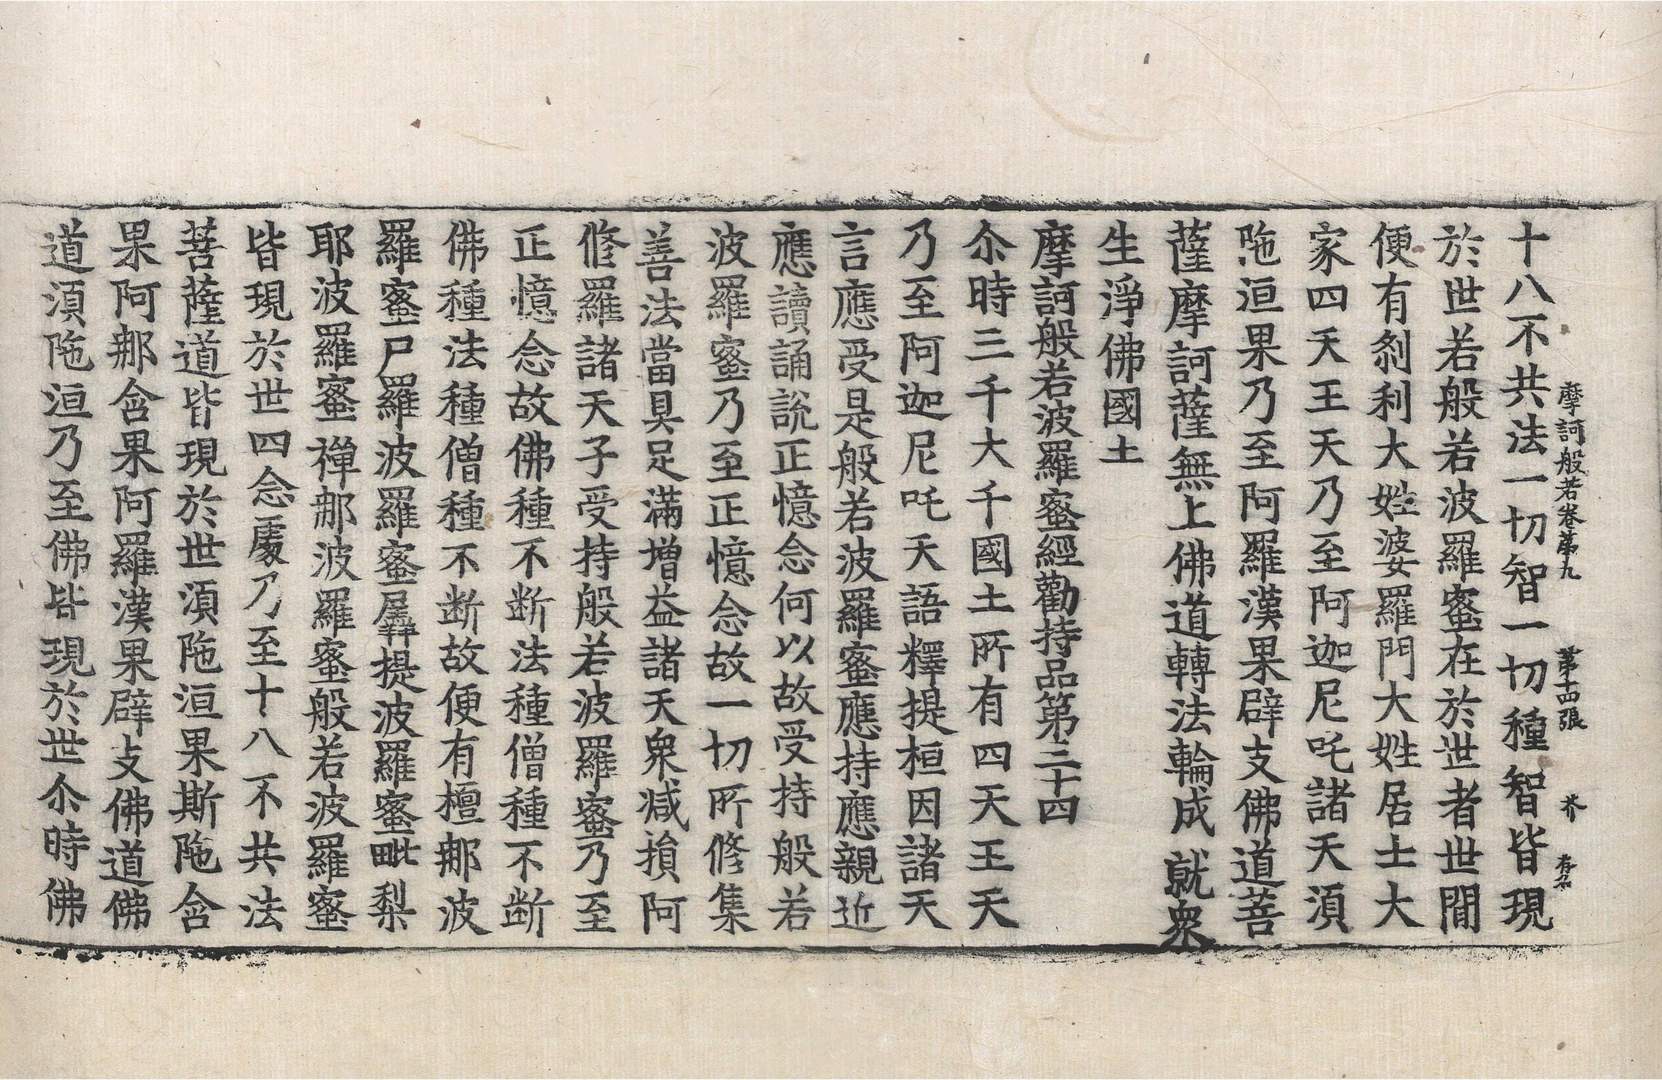 摩訶般若卷第九　第十四張　芥
十八不共法一切智一切種智皆現
於世若般若波羅蜜在於世者世間
便有刹利大姓婆羅門大姓居士大
家四天王天乃至阿迦尼吒諸天須
陁洹果乃至阿羅漢果辟支佛道菩
薩摩訶薩無上佛道轉法輪成就衆
生淨佛國土
摩訶般若波羅蜜經勸持品第三十四
尒時三千大千國土所有四天王天
乃至阿迦尼吒天語釋提桓因諸天
言應受是般若波羅蜜應持應親近
應讀誦說正憶念何以故受持般若
波羅蜜乃至正憶念故一切所修集
善法當具足滿增益諸天衆减損阿
修羅諸天子受持般若波羅蜜乃至
正憶念故佛種不断法種僧種不断
佛種法種僧種不断故便有檀那波
羅蜜尸羅波羅蜜羼提波羅蜜毗梨
耶波羅蜜禪那波羅蜜般若波羅蜜
皆現於世四念處乃至十八不共法
菩薩道皆現於世須陁洹果斯陁含
果阿那含果阿羅漢果辟支佛道佛
道須陁洹乃至佛皆現於世尒時佛